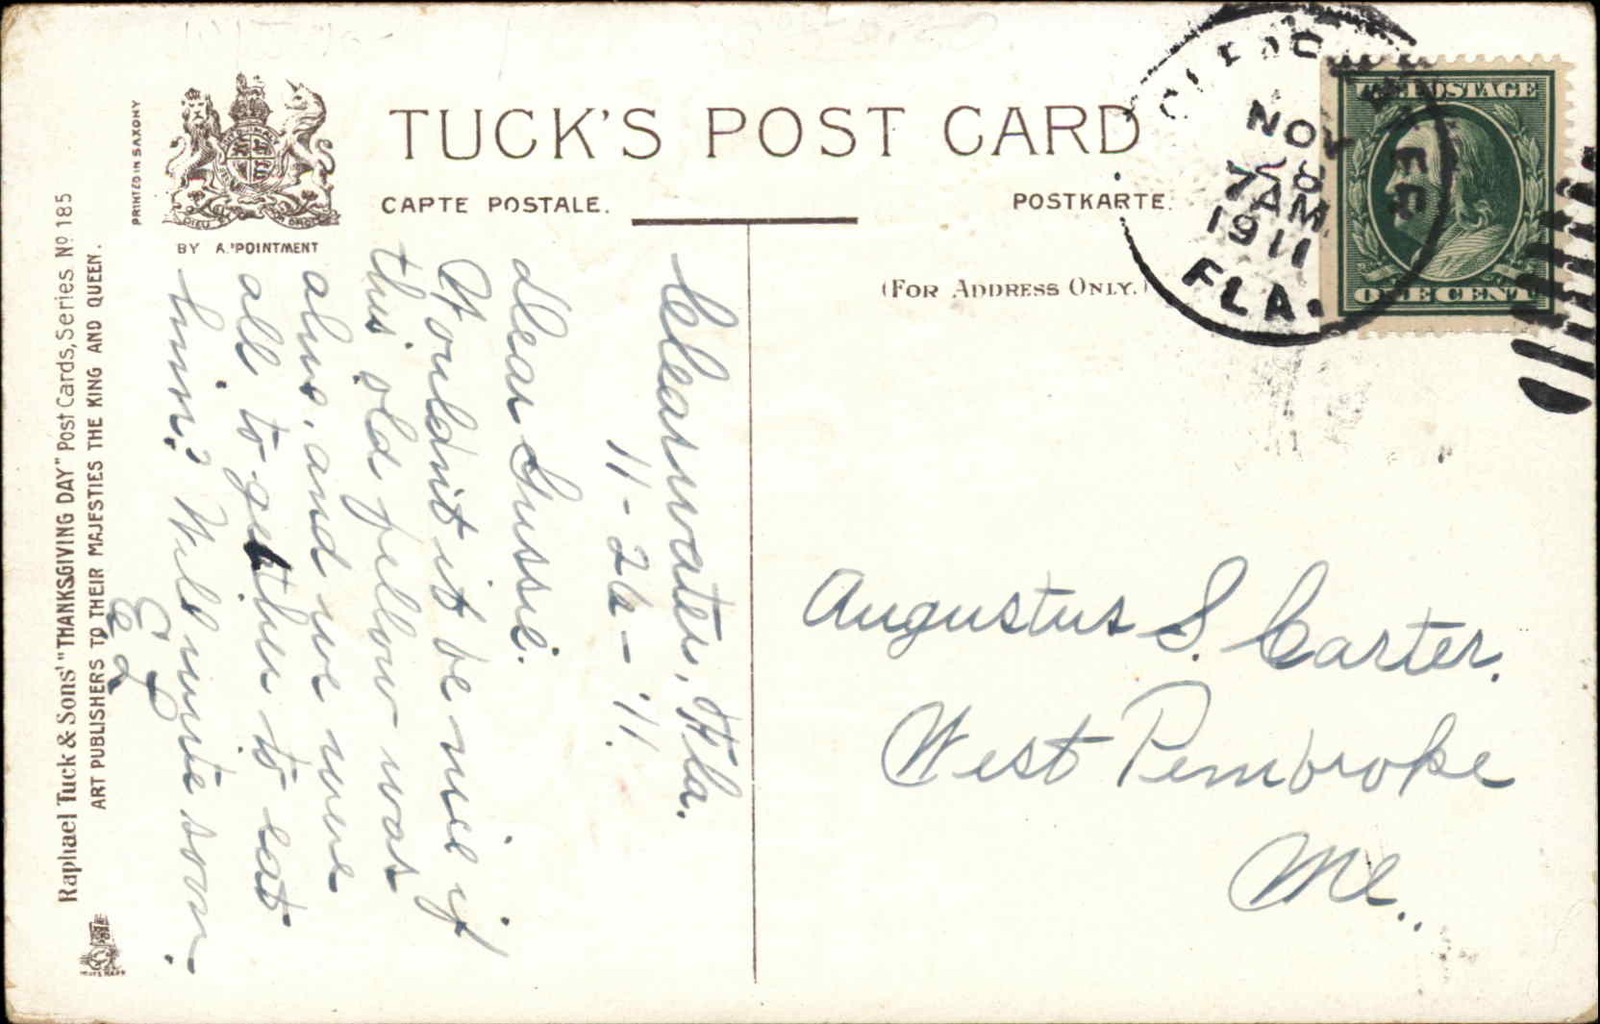 TUCK'S POST CARD
CARTE POSTALE.
POSTKARTE.
(FOR ADDRESS ONLY.)
PRINTED IN SAXONY
BY APPOINTMENT
Raphael Tuck & Sons' "THANKSGIVING DAY" Post Cards, Series Nº 185
ART PUBLISHERS TO THEIR MAJESTIES THE KING AND QUEEN.
NOV
28
7 AM
1911
FLA.
U.S. POSTAGE
ONE CENT
Clearwater, Fla.
11-26-'11.
Dear Gussie.
Wouldn't it be nice if
this old fellow was
alive, and we were
all together to eat
him? Will write soon.
Augustus S. Carter.
West Pembroke
Me.